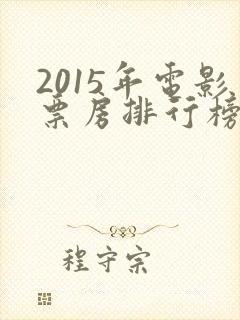 2015年電影
票房排行榜
程守宗